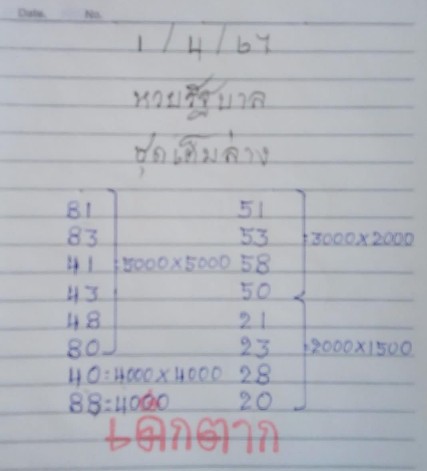 Date. No.
1 / 4 / 67
หวยรัฐบาล
ชุดเต็มล่าง
81 51
83 53 :3000×2000
41 :5000×5000 58
43 50
48 21
80 23 :2000×1500
40:4000×4000 28
88:4000 20
เด็กตาก